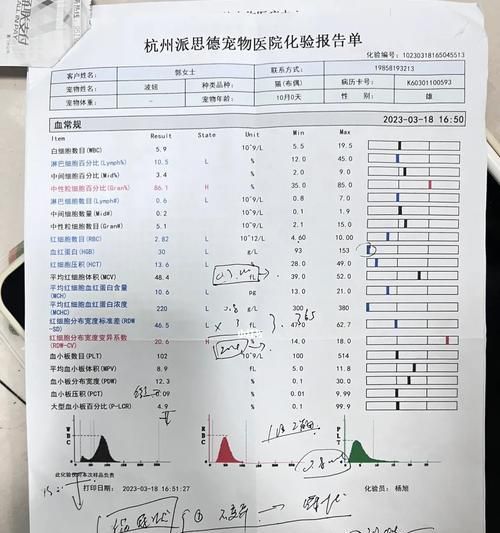 杭州派思德宠物医院化验报告单
化验编号：10230318165045513
客户姓名： 郭女士 联系方式： 19858193213
宠物姓名： 波妞 种类品种： 猫(布偶) 病历卡号： K60301100593
宠物体重： - 宠物年龄： 10月0天 性 别： 雄
血常规 2023-03-18 16:50
Item Result State Unit Min Max
白细胞数目(WBC) 5.9 10^9/L 5.5 19.5
淋巴细胞百分比(Lymph%) 10.5 L % 12.0 45.0
中间细胞百分比(Mid%) 3.4 % 2.0 9.0
中性粒细胞百分比(Gran%) 86.1 H % 35.0 85.0
淋巴细胞数目(Lymph#) 0.6 L 10^9/L 0.8 7.0
中间细胞数量(Mid#) 0.2 10^9/L 0.1 1.9
中性粒细胞数目(Gran#) 5.1 10^9/L 2.1 15.0
红细胞数目(RBC) 2.82 L 10^12/L 4.60 10.00
血红蛋白(HGB) 30 L g/L 93 153
红细胞压积(HCT) 13.6 L % 28.0 49.0
平均红细胞体积(MCV) 48.4 fL 39.0 52.0
平均红细胞血红蛋白含量(MCH) 10.6 L pg 13.0 21.0
平均红细胞血红蛋白浓度(MCHC) 220 L 300 380
红细胞分布宽度标准差(RDW-SD) 46.5 L fL 62.7
红细胞分布宽度变异系数(RDW-CV) 20.6 H % 14.0 18.0
血小板数目(PLT) 102 10^9/L 100 514
平均血小板体积(MPV) 8.9 fL 5.0 11.8
血小板分布宽度(PDW) 12.3 % 0.1 30.0
血小板压积(PCT) 0.09 % 0.01 9.99
大型血小板百分比(P-LCR) 4.9 % 0.1 99.9
WBC RBC PLT
此化验仅对本次样品负责
打印日期： 2023-03-18 16:51:27 化验员： 杨旭